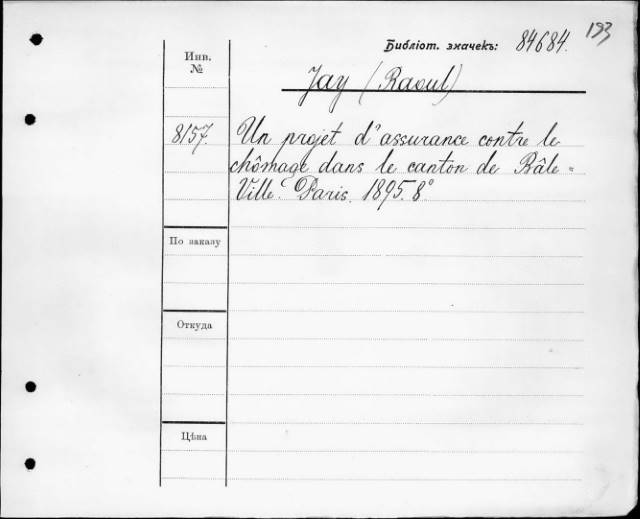 193
Библіот. значекъ: 84684.
Инв.
№
Jay (Raoul)
8157.
Un projet d'assurance contre le
chômage dans le canton de Bâle-
Ville. Paris. 1895. 8°
По заказу
Откуда
Цѣна